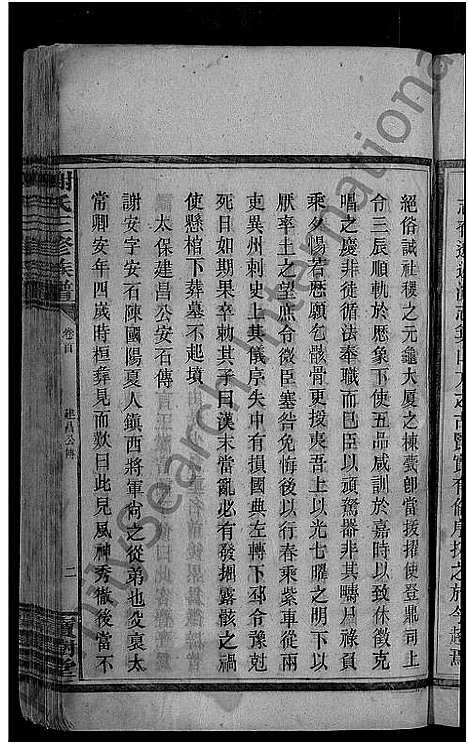 絕俗誠社稷之元龜大廈之棟甍卽當拔擢使登鼎司上
令三辰順軌於歷象下使五品咸訓於嘉時以致休徵克
唱之慶非徒循法奉職而已臣以頑駑器非其疇尸祿負
乘夕惕若厯願乞骸骨更授夷吾上以光七曜之明下以
厭率土之望庶令微臣塞咎免悔後以行春乘柴車從兩
吏異州刺史上其儀序失中有損國典左轉下邳令豫剋
死日如期果卒勅其子曰漢末當亂必有發掘露骸之禍
使懸棺下葬墓不起墳
太保建昌公安石傳
謝安字安石陳國陽夏人鎮西將軍尙之從弟也父裒太
常卿安年四歲時桓彝見而歎曰此兒風神秀徹後當不
謝氏三修族譜
卷首
建昌公傳
二
寶樹堂